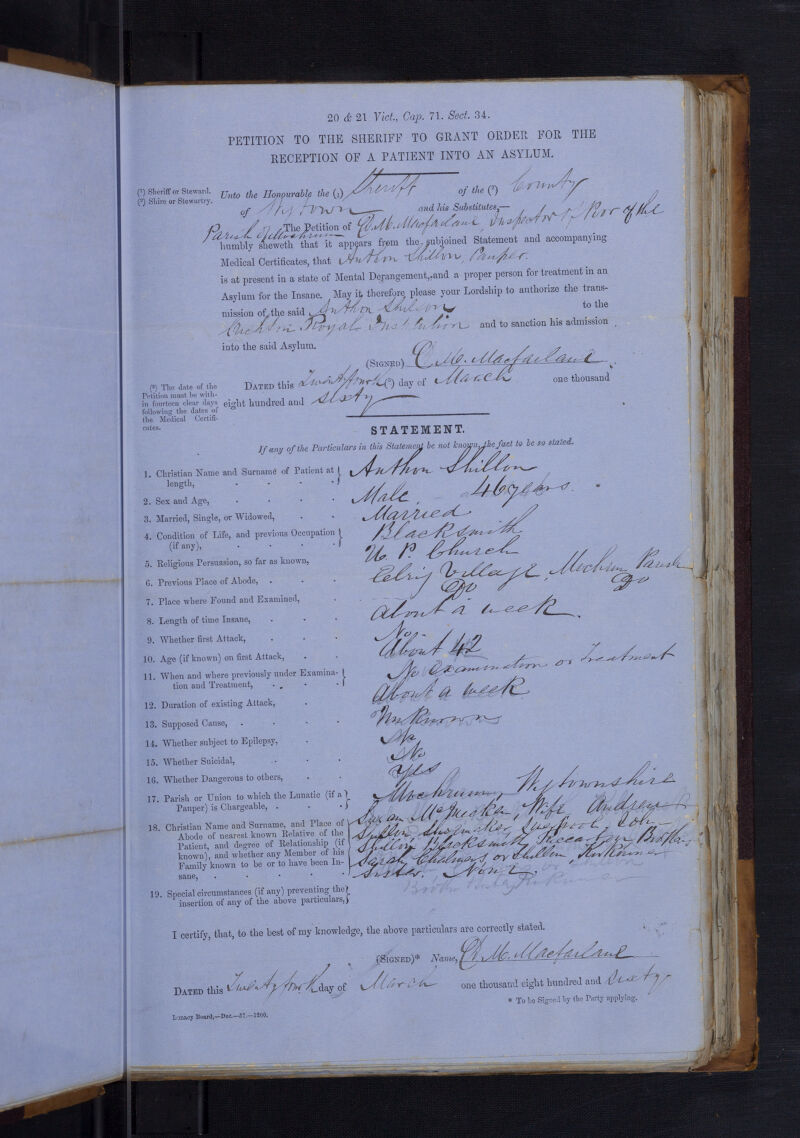 20 & 21 Vict., Cap. 71. Sect. 34.
PETITION TO THE SHERIFF TO GRANT ORDER FOR THE
RECEPTION OF A PATIENT INTO AN ASYLUM.
(¹) Sheriff or Steward.
(²) Shire or Stewartry.
Unto the Honourable the (¹) Sheriff of the (²) County
of Wigtown and his Substitutes,—
The Petition of C. M. Macfarlane Inspector of Poor of the
Parish of Mochrum
humbly sheweth that it appears from the subjoined Statement and accompanying
Medical Certificates, that Anthon Shillon, Pauper.
is at present in a state of Mental Derangement, and a proper person for treatment in an
Asylum for the Insane. May it therefore please your Lordship to authorize the trans-
mission of the said Anthon Shillon to the
Crichton Royal Institution and to sanction his admission
into the said Asylum.
(SIGNED) C. M. Macfarlane
(³) The date of the
Petition must be with-
in fourteen clear days
following the dates of
the Medical Certifi-
cates.
DATED this Twenty fourth (³) day of March one thousand
eight hundred and sixty
STATEMENT.
If any of the Particulars in this Statement be not known, the fact to be so stated.
1. Christian Name and Surname of Patient at length, Anthon Shillon
2. Sex and Age, Male 46 years.
3. Married, Single, or Widowed, Married
4. Condition of Life, and previous Occupation (if any), Blacksmith
5. Religious Persuasion, so far as known, U. P. Church
6. Previous Place of Abode, Eelrig Village, Mochrum Parish
7. Place where Found and Examined, Do Do
8. Length of time Insane, About a week.
9. Whether first Attack, No.
10. Age (if known) on first Attack, About 42
11. When and where previously under Examina-
tion and Treatment, No Examination or Treatment
12. Duration of existing Attack, About a week
13. Supposed Cause, Unknown
14. Whether subject to Epilepsy, No
15. Whether Suicidal, No
16. Whether Dangerous to others, Yes
17. Parish or Union to which the Lunatic (if a
Pauper) is Chargeable, Mochrum, Wigtownshire
18. Christian Name and Surname, and Place of
Abode of nearest known Relative of the
Patient, and degree of Relationship (if
known), and whether any Member of his
Family known to be or to have been In-
sane,
Susan McGucken, Wife Andrew
Shillon Shoemaker Liverpool, John
Shillon Blacksmith Brother
Sarah Chalmers or Shillon
Sister. None.
19. Special circumstances (if any) preventing the
insertion of any of the above particulars,
I certify, that, to the best of my knowledge, the above particulars are correctly stated.
(SIGNED)* Name, C. M. Macfarlane
DATED this Twenty fourth day of March one thousand eight hundred and Sixty
* To be Signed by the Party applying.
Lunacy Board,—Dec.—57.—1200.